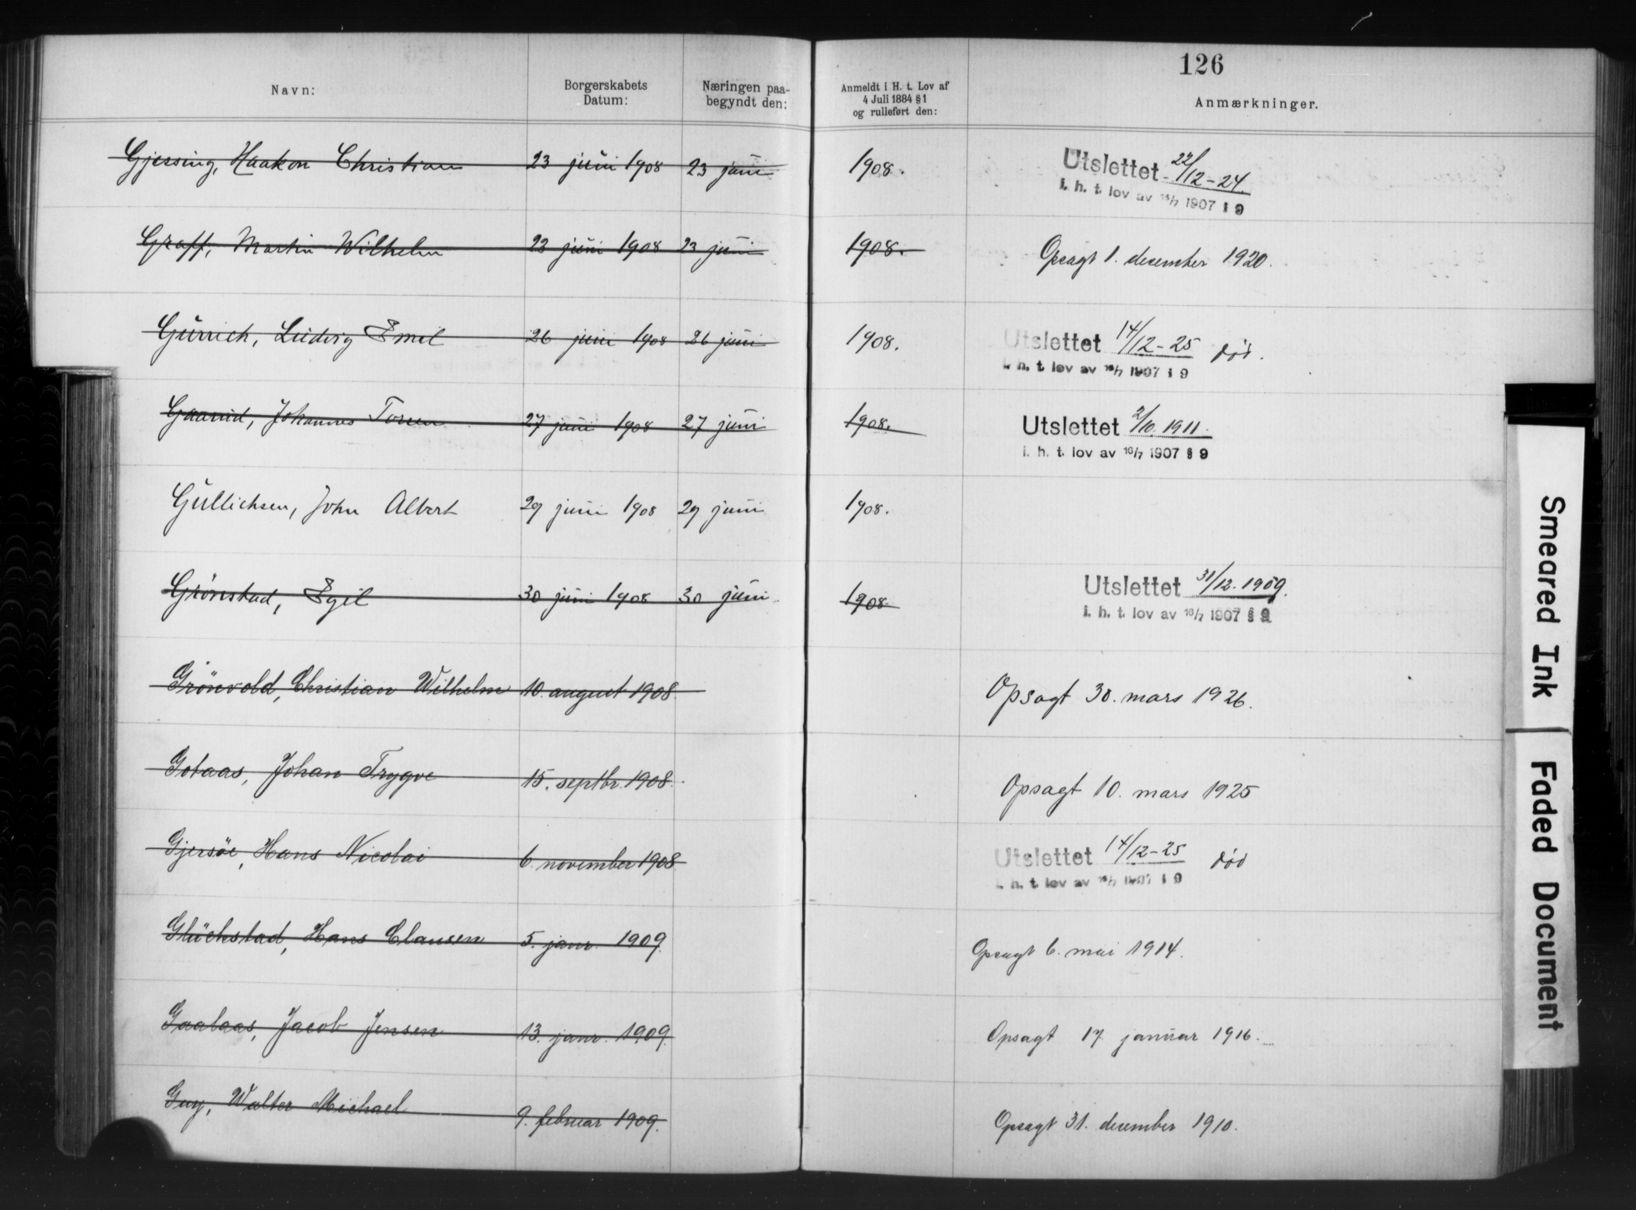 126
Navn:
Borgerskabets Datum:
Næringen paa-
begyndt den:
Anmeldt i H. t. Lov af
4 Juli 1884 § 1
og rulleført den:
Anmærkninger.
Gjersing, Haakon Christian 23 juni 1908 23 juni 1908. Utslettet 22/12-24.
i. h. t. lov av 16/7 1907 § 9
Graff, Martin Wilhelm 23 juni 1908 23 juni 1908. Opsagt 1. desember 1920.
Gürrich, Ludvig Emil 26 juni 1908 26 juni 1908. Utslettet 14/12-25 død.
i. h. t. lov av 16/7 1907 § 9
Gaarud, Johannes 27 juni 1908 27 juni 1908. Utslettet 2/10. 1911.
i. h. t. lov av 16/7 1907 § 9
Gullichsen, John Albert 29 juni 1908 29 juni 1908.
Grönstad, Egil 30 juni 1908 30 juni 1908 Utslettet 31/12. 1909.
i. h. t. lov av 16/7 1907 § 9
Grönvold, Christian Wilhelm 10. august 1908. Opsagt 30. mars 1926.
Gotaas, Johan Trygve 15. septbr. 1908. Opsagt 10. mars 1925
Gjersöe, Hans Nicolai 6. november 1908 Utslettet 14/12-25 død
i. h. t. lov av 16/7 1907 § 9
Glückstad, Hans Clausen 5. janr. 1909. Opsagt 6. mai 1914.
Gaalaas, Jacob Jensen 13. janr. 1909. Opsagt 17 januar 1916.
Guy, Walter Michael 9. februar 1909. Opsagt 31. december 1910.
Smeared Ink
Faded Document